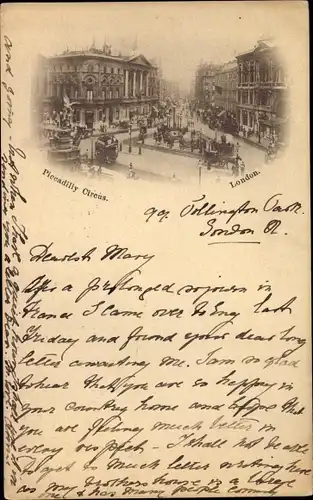 Piccadilly Circus.
London.
99 Tollington Park.
London N.
Dearest Mary
After a prolonged sojourn in
France I came over to Eng last
Friday and found your dear long
letter awaiting me. I am so glad
to hear that you are so happy in
your country home and hope that
you are feeling much better in
every respect - I shall not be able
to get to much letter writing here
as my brothers house is a large
one & has many people coming